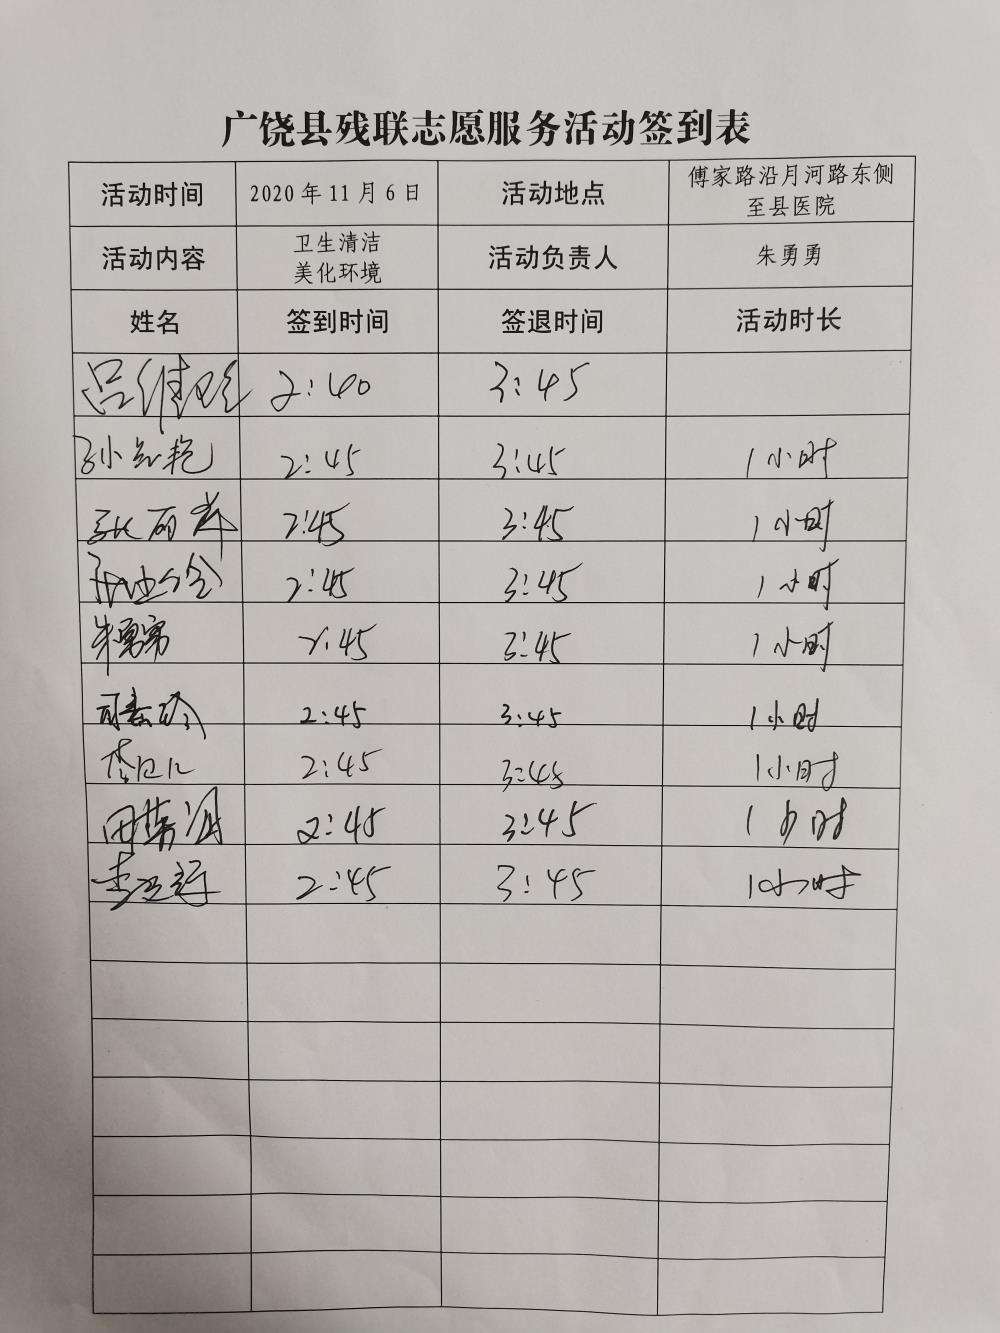 广饶县残联志愿服务活动签到表
活动时间 2020年11月6日 活动地点 傅家路沿月河路东侧
至县医院
活动内容 卫生清洁
美化环境 活动负责人 朱勇勇
姓名 签到时间 签退时间 活动时长
2:40 3:45
2:45 3:45 1小时
2:45 3:45 1小时
2:45 3:45 1小时
朱勇勇 2:45 3:45 1小时
2:45 3:45 1小时
2:45 3:45 1小时
2:45 3:45 1小时
2:45 3:45 1小时